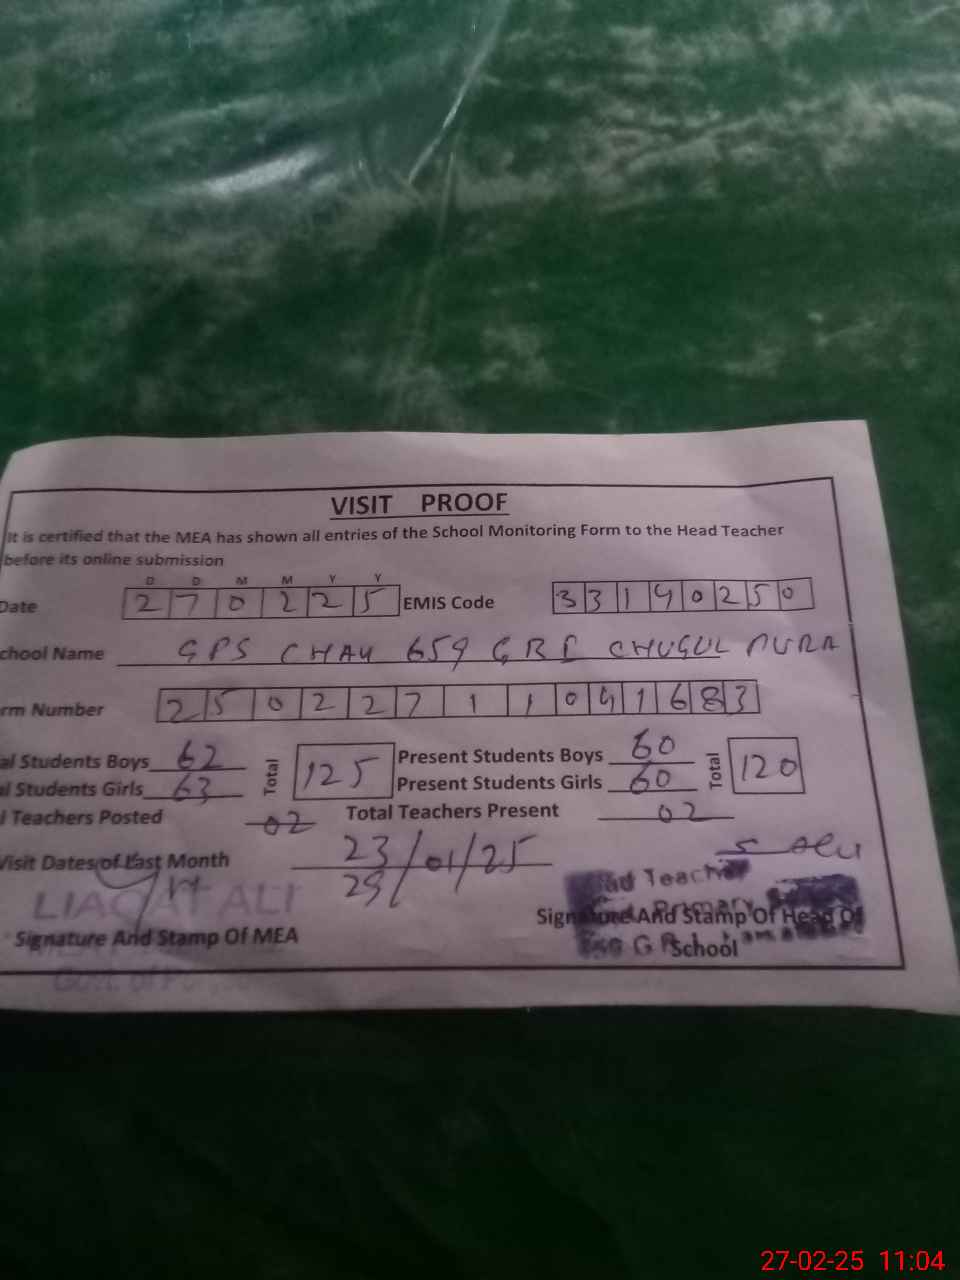 VISIT PROOF
It is certified that the MEA has shown all entries of the School Monitoring Form to the Head Teacher
before its online submission
D D M M Y Y
Date 2 7 0 2 2 5 EMIS Code 3 3 1 4 0 2 5 0
chool Name GPS CHAK 659 GB CHUGUL PURA
rm Number 2 5 0 2 2 7 1 1 0 4 1 6 8 3
al Students Boys 62 Total 125 Present Students Boys 60 Total 120
al Students Girls 63 Present Students Girls 60
l Teachers Posted 02 Total Teachers Present 02
Visit Dates of Last Month 23/01/25
29
LIAQAT ALI
Head Teacher
Primary
Signature And Stamp Of MEA
Signature And Stamp Of Head Of
School
Govt. of
27-02-25 11:04